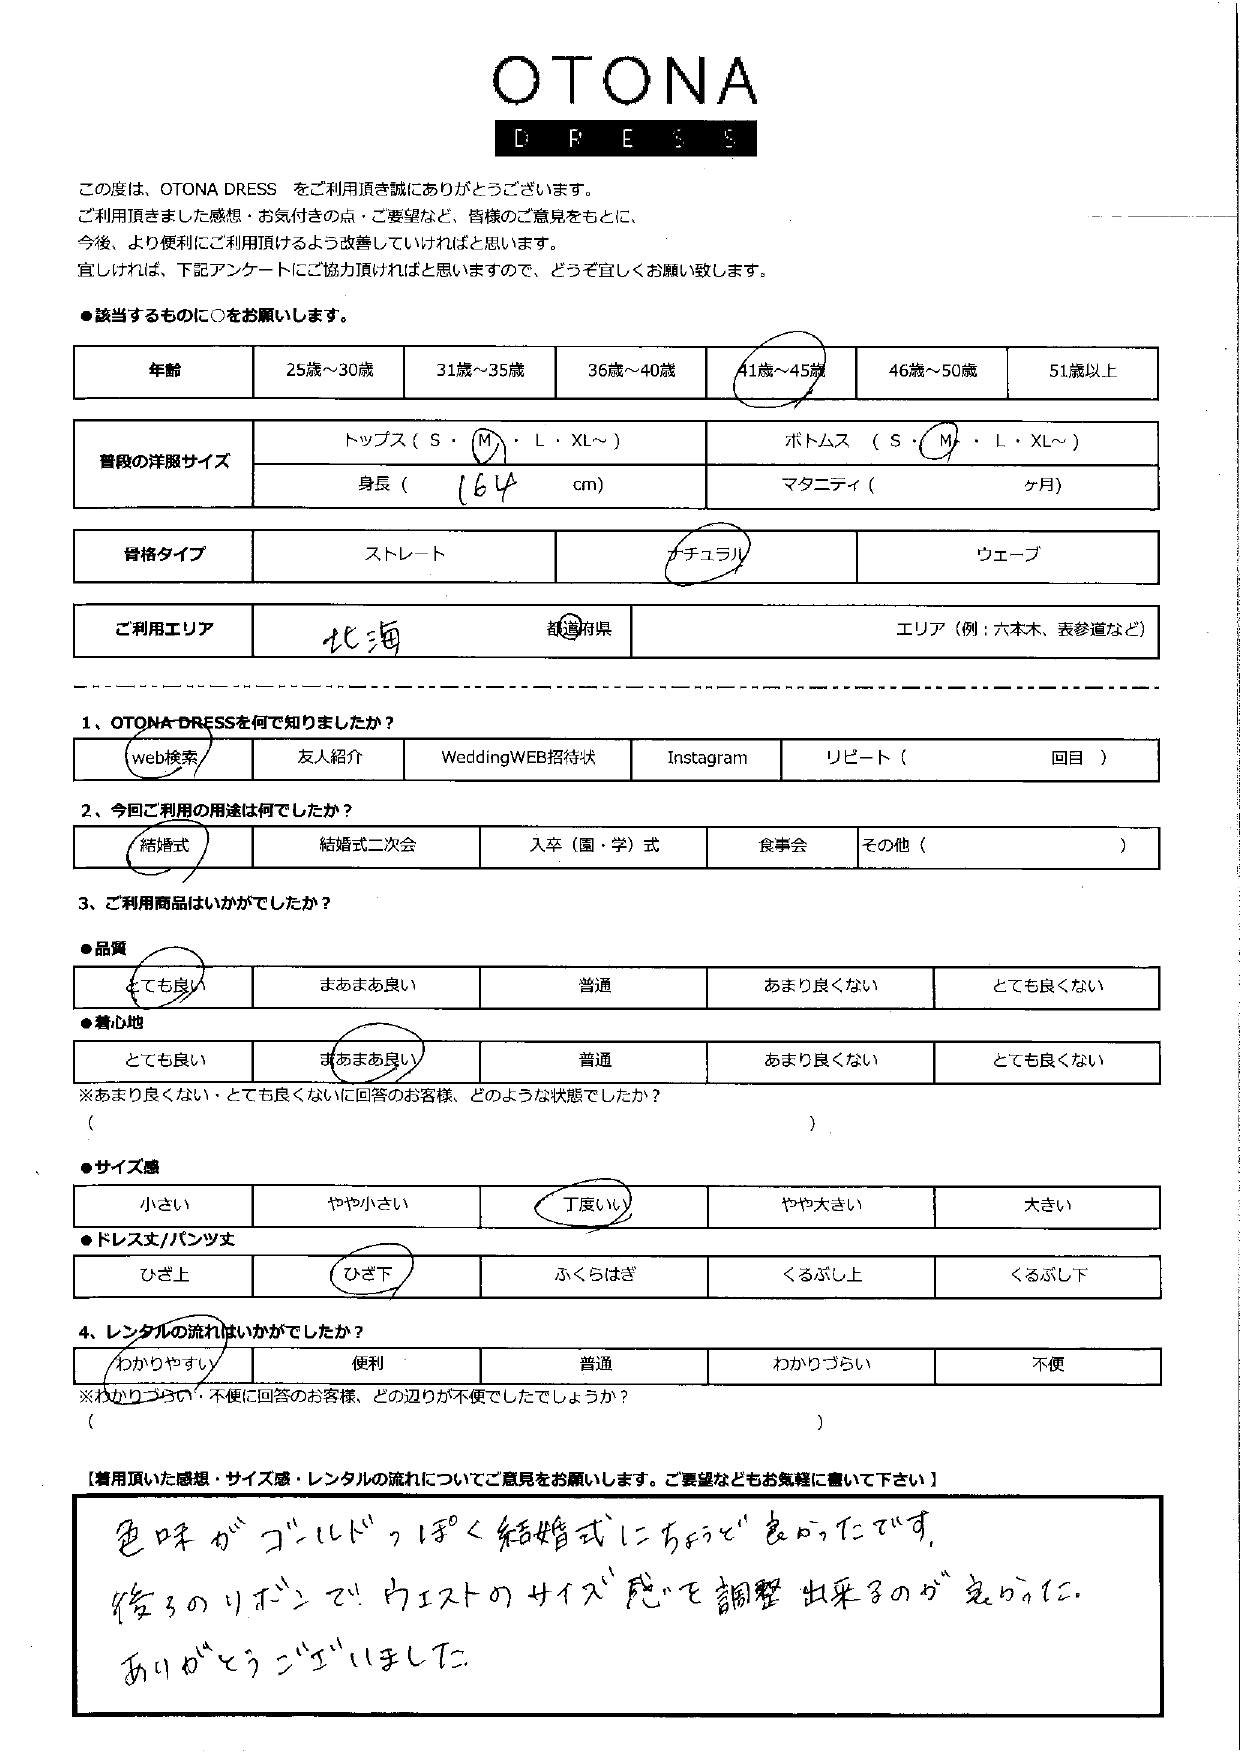 OTONA
DRESS
この度は、OTONA DRESS　をご利用頂き誠にありがとうございます。
ご利用頂きました感想・お気付きの点・ご要望など、皆様のご意見をもとに、
今後、より便利にご利用頂けるよう改善していければと思います。
宜しければ、下記アンケートにご協力頂ければと思いますので、どうぞ宜しくお願い致します。
●該当するものに○をお願いします。
年齢 25歳～30歳 31歳～35歳 36歳～40歳 41歳～45歳 46歳～50歳 51歳以上
普段の洋服サイズ
トップス ( S ・ M ・ L ・ XL～ ) ボトムス （ S ・ M ・ L ・ XL～ )
身長 ( 164 cm) マタニティ ( ヶ月)
骨格タイプ ストレート ナチュラル ウェーブ
ご利用エリア 北海 都道府県 エリア（例：六本木、表参道など）
1、OTONA DRESSを何で知りましたか？
web検索 友人紹介 WeddingWEB招待状 Instagram リピート（ 回目 ）
2、今回ご利用の用途は何でしたか？
結婚式 結婚式二次会 入卒（園・学）式 食事会 その他（ ）
3、ご利用商品はいかがでしたか？
●品質
とても良い まあまあ良い 普通 あまり良くない とても良くない
●着心地
とても良い まあまあ良い 普通 あまり良くない とても良くない
※あまり良くない・とても良くないに回答のお客様、どのような状態でしたか？
（ ）
●サイズ感
小さい やや小さい 丁度いい やや大きい 大きい
●ドレス丈/パンツ丈
ひざ上 ひざ下 ふくらはぎ くるぶし上 くるぶし下
4、レンタルの流れはいかがでしたか？
わかりやすい 便利 普通 わかりづらい 不便
※わかりづらい・不便に回答のお客様、どの辺りが不便でしたでしょうか？
（ ）
【着用頂いた感想・サイズ感・レンタルの流れについてご意見をお願いします。ご要望などもお気軽に書いて下さい】
色味がゴールドっぽく結婚式にちょうど良かったです。
後ろのリボンでウエストのサイズ感を調整出来るのが良かった。
ありがとうございました。